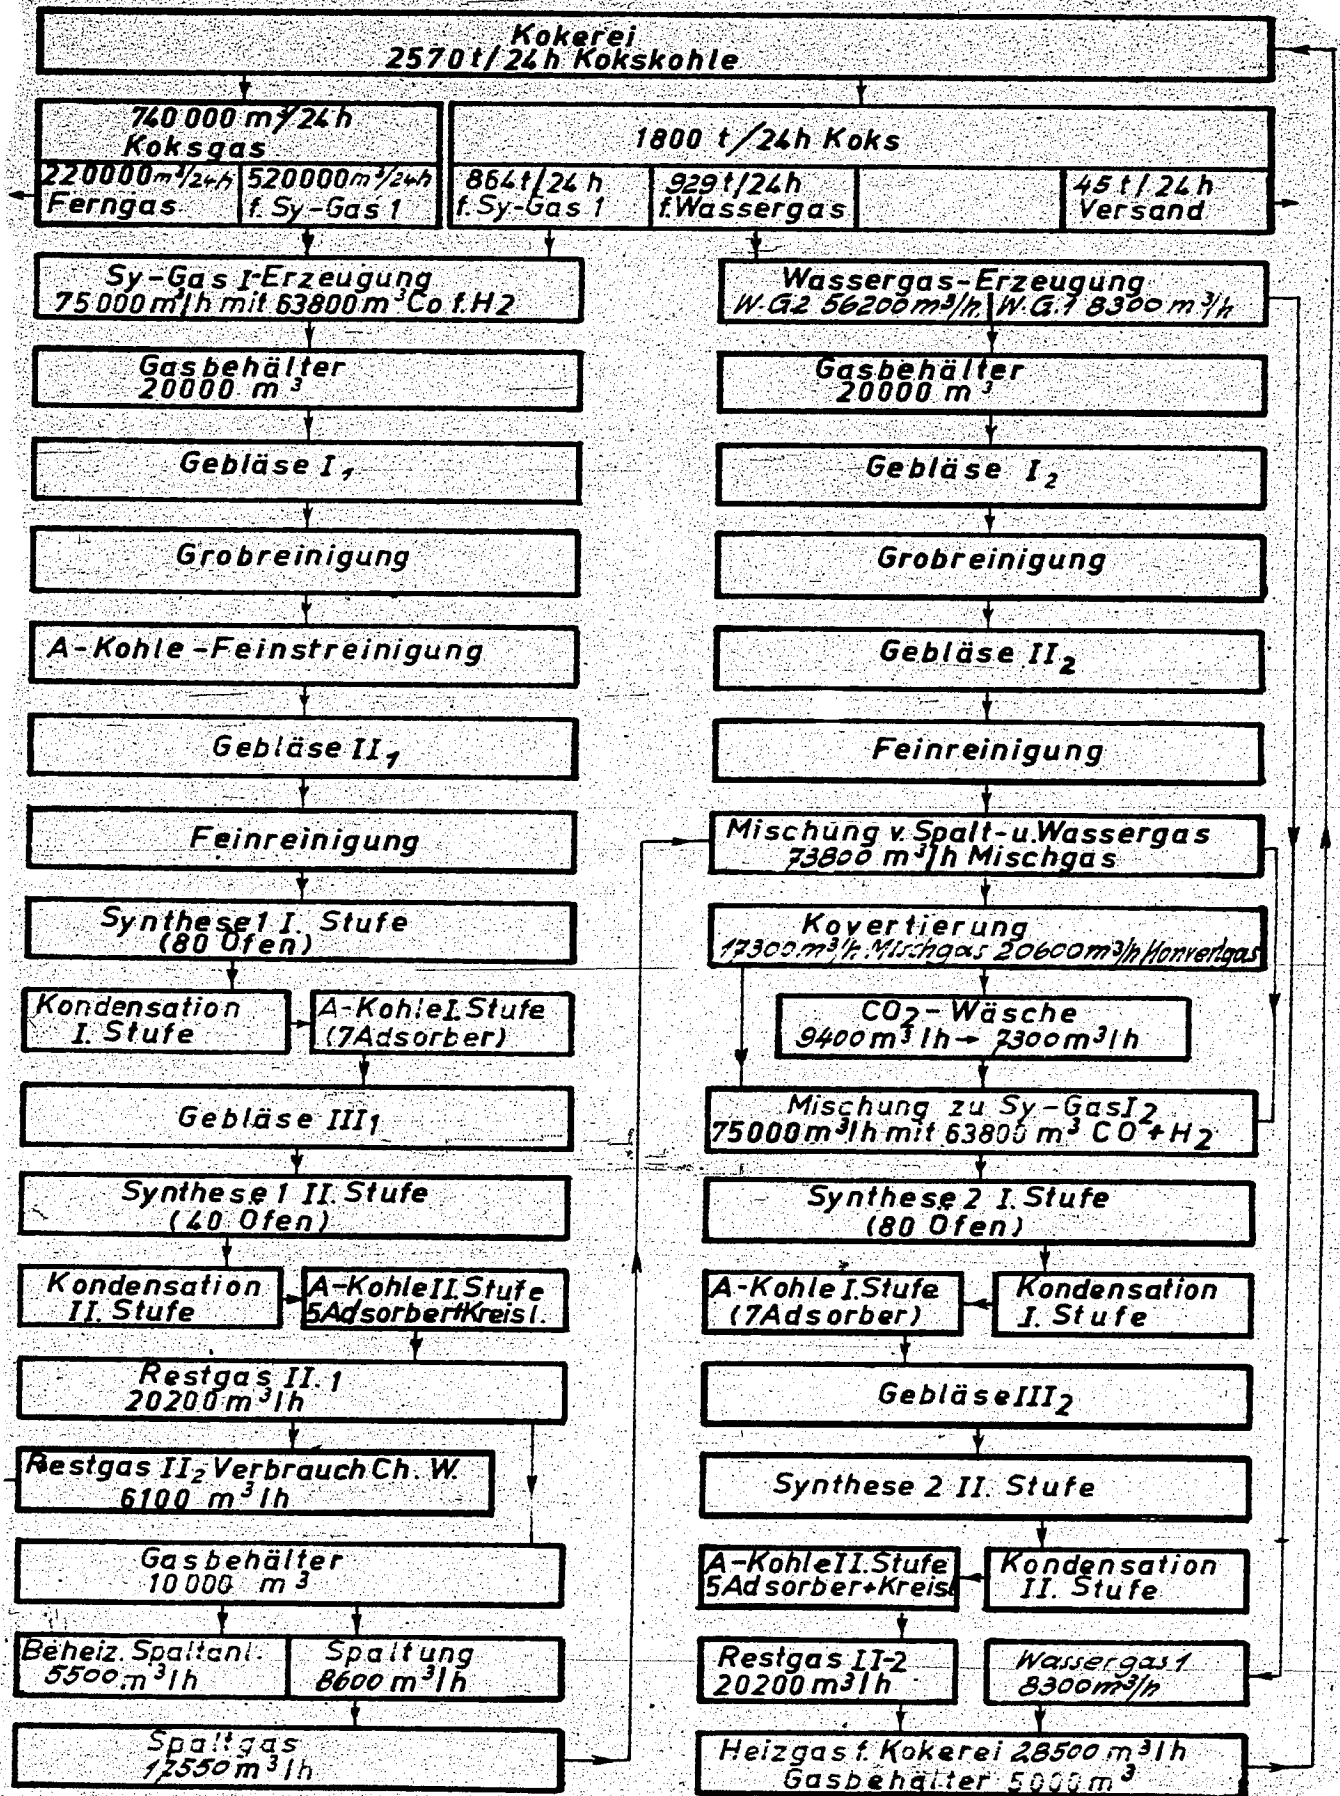 Kokerei
2570 t/24h Kokskohle
740 000 m³/24h
Koksgas
220000 m³/24h
Ferngas
520000 m³/24h
f. Sy-Gas 1
1800 t/24h Koks
864 t/24 h
f. Sy-Gas 1
929 t/24h
f. Wassergas
45 t/24h
Versand
Sy-Gas I-Erzeugung
75 000 m³/h mit 63800 m³ Co f. H2
Gasbehälter
20000 m³
Gebläse I₁
Grobreinigung
A-Kohle-Feinstreinigung
Gebläse II₁
Feinreinigung
Synthese 1 I. Stufe
(80 Öfen)
Kondensation
I. Stufe
A-Kohle I. Stufe
(7 Adsorber)
Gebläse III₁
Synthese 1 II. Stufe
(40 Öfen)
Kondensation
II. Stufe
A-Kohle II. Stufe
5 Adsorber+Kreisl.
Restgas II.1
20200 m³/h
Restgas II₂ Verbrauch Ch. W.
6100 m³/h
Gasbehälter
10 000 m³
Beheiz. Spaltanl.
5500 m³/h
Spaltung
8600 m³/h
Spaltgas
12550 m³/h
Wassergas-Erzeugung
W.G.2 56200 m³/h. W.G.1 8300 m³/h
Gasbehälter
20000 m³
Gebläse I₂
Grobreinigung
Gebläse II₂
Feinreinigung
Mischung v. Spalt- u. Wassergas
73800 m³/h Mischgas
Kovertierung
17300 m³/h. Mischgas 20600 m³/h Konvertgas
CO₂-Wäsche
9400 m³/h → 7300 m³/h
Mischung zu Sy-Gas I₂
75000 m³/h mit 63800 m³ CO + H₂
Synthese 2 I. Stufe
(80 Öfen)
A-Kohle I. Stufe
(7 Adsorber)
Kondensation
I. Stufe
Gebläse III₂
Synthese 2 II. Stufe
A-Kohle II. Stufe
5 Adsorber+Kreisl
Kondensation
II. Stufe
Restgas II-2
20200 m³/h
Wassergas 1
8300 m³/h
Heizgas f. Kokerei 28500 m³/h
Gasbehälter 5000 m³